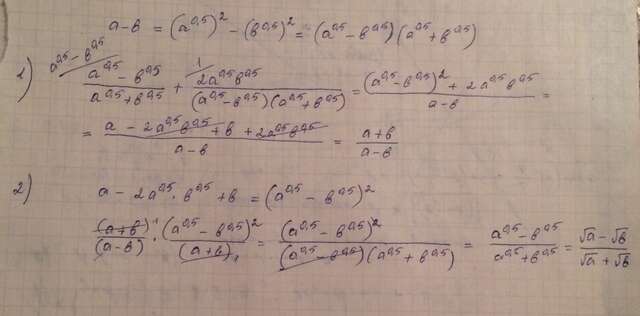 a-b = (a^0,5)^2 - (b^0,5)^2 = (a^0,5 - b^0,5)(a^0,5 + b^0,5)
1) a^0,5 - b^0,5/ (a^0,5 - b^0,5)/(a^0,5 + b^0,5) + 1/ (2a^0,5 b^0,5)/((a^0,5 - b^0,5)(a^0,5 + b^0,5)) = ((a^0,5 - b^0,5)^2 + 2a^0,5 b^0,5)/(a-b) =
= (a - 2a^0,5 b^0,5 + b + 2a^0,5 b^0,5)/(a-b) = (a+b)/(a-b)
2) a - 2a^0,5 · b^0,5 + b = (a^0,5 - b^0,5)^2
(a+b)^1/(a-b) · (a^0,5 - b^0,5)^2/(a+b)_1 = (a^0,5 - b^0,5)^2/((a^0,5 - b^0,5)(a^0,5 + b^0,5)) = (a^0,5 - b^0,5)/(a^0,5 + b^0,5) = (√a - √b)/(√a + √b)